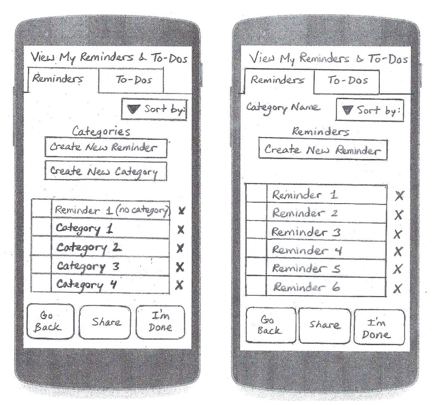 View My Reminders & To-Dos
Reminders To-Dos
Sort by:
Categories
Create New Reminder
Create New Category
Reminder 1 (no category) X
Category 1 X
Category 2 X
Category 3 X
Category 4 X
Go Back Share I'm Done
View My Reminders & To-Dos
Reminders To-Dos
Category Name Sort by:
Reminders
Create New Reminder
Reminder 1 X
Reminder 2 X
Reminder 3 X
Reminder 4 X
Reminder 5 X
Reminder 6 X
Go Back Share I'm Done